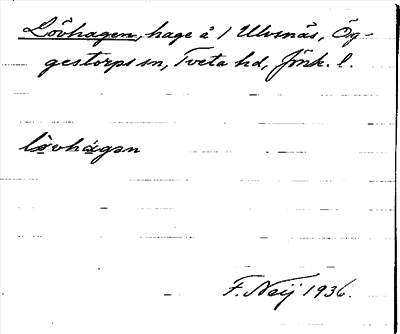 Lövhagen, hage å 1 Ulvsnäs, Ög-
gestorps sn, Tveta hd, Jönk. l.
lövhagən
F. Neij 1936.